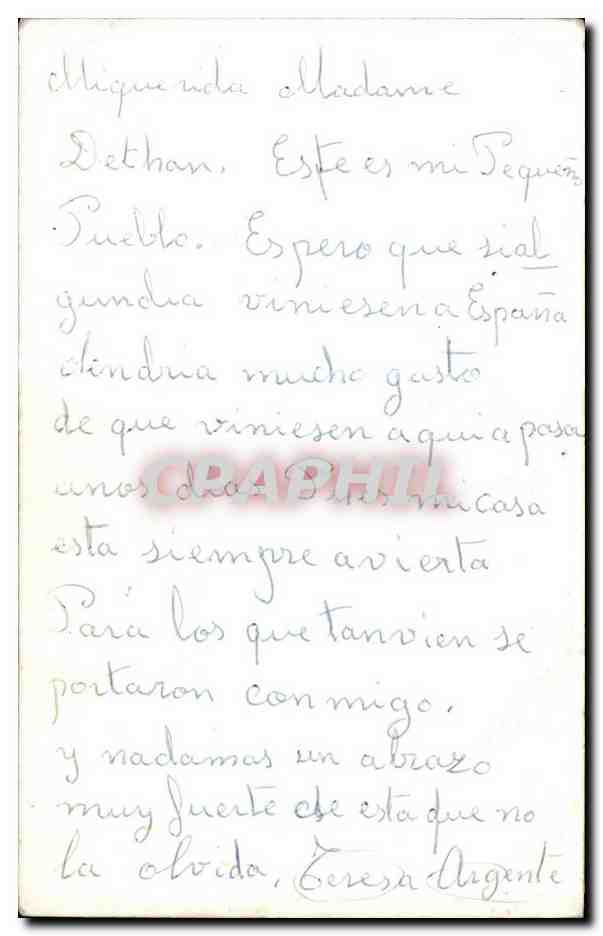 Miquerida Madame
Dethan. Este es mi Pequeño
Pueblo. Espero que si al
gundia viniesen a España
dendria mucho gusto
de que viniesen a qui a pasar
unos dias Pues mi casa
esta siempre avierta
Para los que tanvien se
portaron conmigo.
y nadamas un abrazo
muy fuerte de esta que no
la olvida. Teresa Argente
CPAPHIL